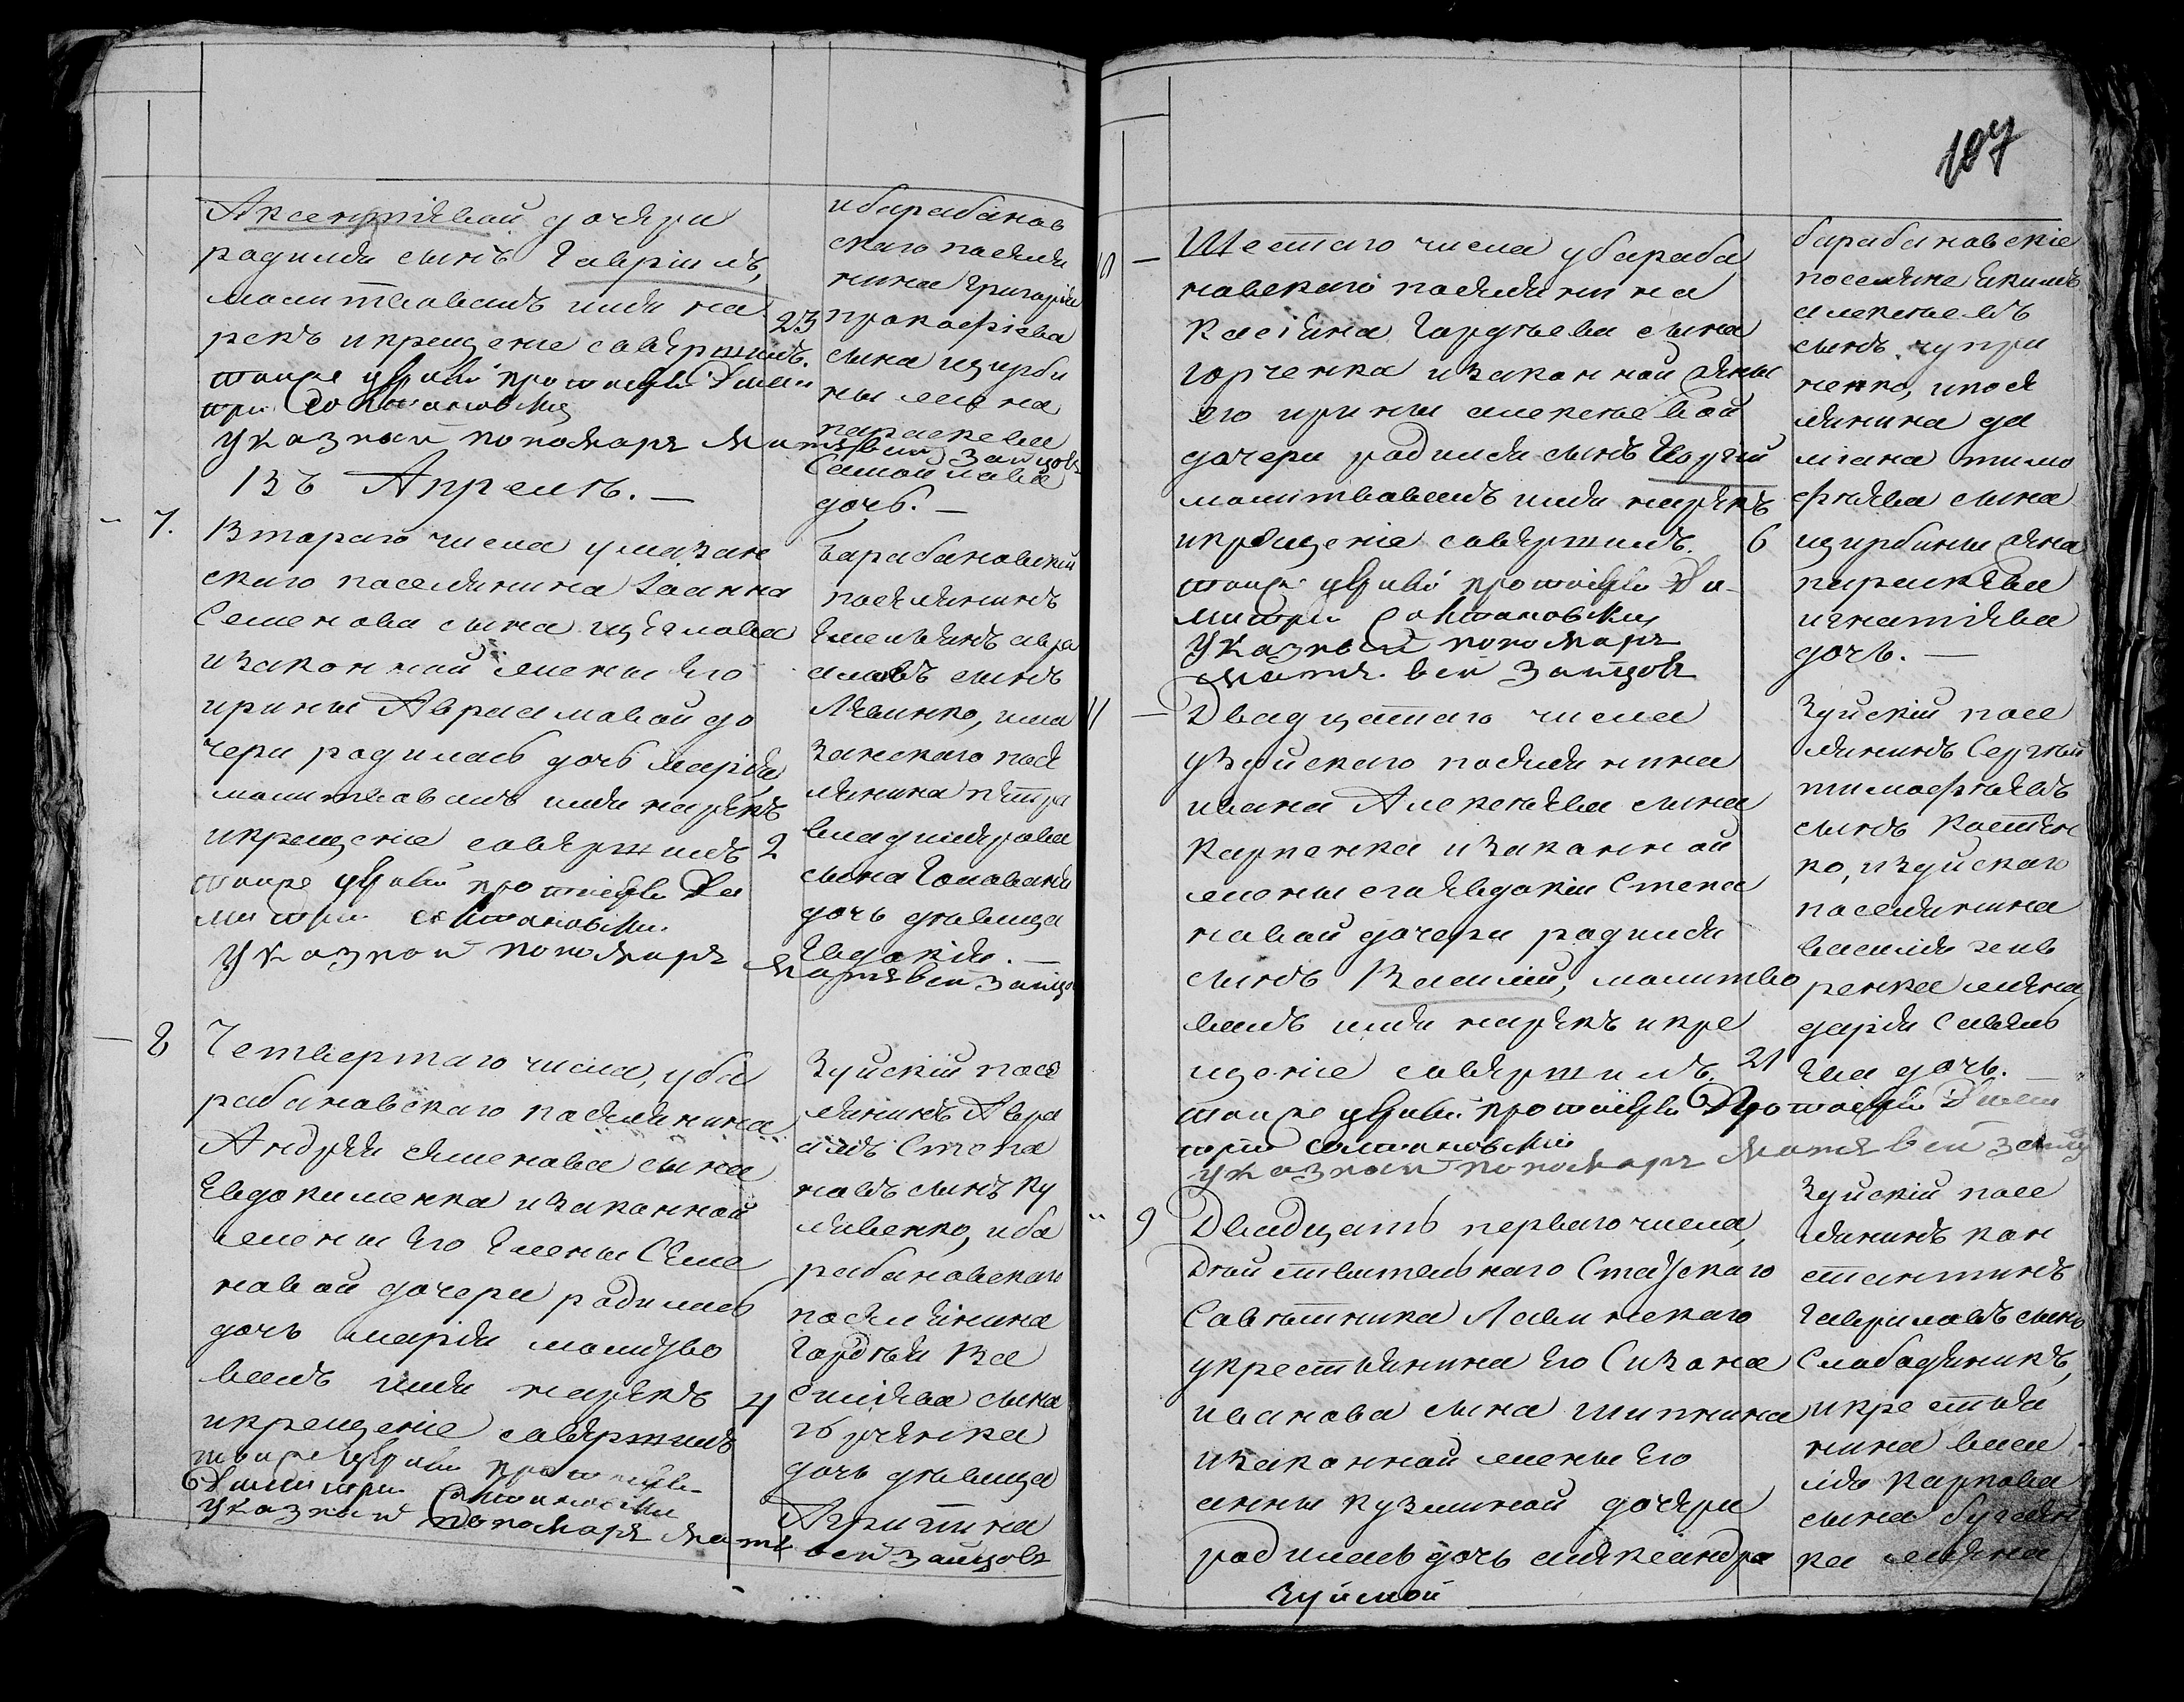 Аксентіевой дочери
родился сынъ Гавріилъ,
молитвовалъ имя на
рекъ и крещеніе совершилъ. 23
тоиже церкви протоіерей Дими
три
указной пономарь Матвей Зайцовъ
и барабанов
скаго поселя
нина Григорія
Прокофіева
сына
жена
параскева
дочь. —
Въ Апреле. —
7. Втораго числа у мазан
скаго поселянина Іоанна
Семенова сына
и законной жены Его
ирины Авраамовой до
чери родилась дочь марія
молитвовалъ имя нарекъ
и крещеніе совершилъ 2
тоиже церкви протоіерей Ди
митри
указной пономарь Матвей Зайцо
Барабановскій
поселянинъ
Емельянъ авра
амовъ сынъ
Левинко, и ма
занскаго посе
лянина петра
владимерова
сына Головани
дочь девица
Евдокія. —
8 Четвертаго числа, у ба
рабановскаго поселянина
Андрея семенова сына
Евдокименка и законной
жены Его Елены Семе
новой дочери родилась
дочь марія молитво
валъ имя нарекъ 4
и крещеніе совершилъ
тоиже церкви протоіерей
Димитри
указной пономарь Матвей Зайцовъ
Зуйскій посе
лянинъ Авра
амъ Степа
новъ сынъ Ку
ливенко, и ба
рабановскаго
поселянина
Гордея Ва
силіева сына
дочь девица
Агрипина
107
10 — Шестаго числа у бараба
новскаго поселянина
Касіяна Гордеева сына
Горченка и законной жены
его ирины алексеевой
дочери родился сынъ Георгій
молитвовалъ имя нарекъ
и крещеніе совершилъ. 6
тоиже церкви протоіерей Ди
митри
указной пономарь
Матвей Зайцовъ
барабановскіе
поселяне Екимъ
алексеевъ
сынъ чупри
ненко, и посе
лянина да
міана тимо
феева сына
жена
параскева
игнатіева
дочь. —
11 — Двадцатаго числа
у Зуйскаго поселянина
ивана Алексеева сына
Карпенка и законной
жены его Евдокіи Степа
новой дочери родился
сынъ Василій, молитво
валъ имя нарекъ и кре
щеніе совершилъ. 21
тоиже церкви протоіерей Протоіерей Дими
три
указной пономарь Матвей Зайцо
Зуйскій посе
лянинъ Сергей
тимофеевъ
сынъ Костен
ко, и Зуйскаго
поселянина
василія
ренка жена
дарія Савель
ева дочь. —
9 Двадцать перваго числа,
Действительнаго Статскаго
Советника Лавинскаго
у крестьянина Его Сизона
иванова сына Шипкина
и законной жены Его
анны кузминой дочери
родилась дочь александра
Зуйской
Зуйскій посе
лянинъ кон
стантинъ
Гавриловъ сынъ
Слободяникъ,
и крестья
нина васи
лія карпова
сына бугаен
ка жена